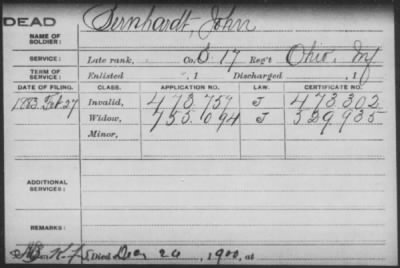 DEAD
NAME OF SOLDIER: Bernhardt, John
SERVICE: Late rank, Co. G 17 Reg't Ohio Inf
TERM OF SERVICE: Enlisted , 1 Discharged , 1
DATE OF FILING. CLASS. APPLICATION NO. LAW. CERTIFICATE NO.
1883 Feb. 27 Invalid, 473.757 J 473.302
Widow, 755.094 J 529.935
Minor,
ADDITIONAL SERVICES:
REMARKS:
Died Dec 26, 1900, at